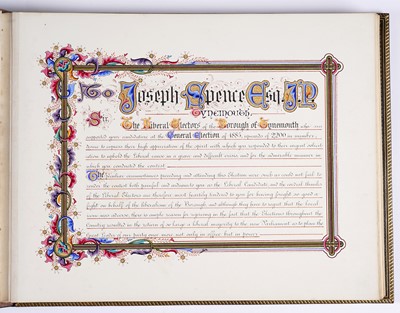 To Joseph Spence Esq. J.P.
Tynemouth.
Sir, The Liberal Electors of the Borough of Tynemouth who
supported your candidature at the General Election of 1885, upwards of 2200 in number,
desire to express their high appreciation of the spirit with which you responded to their request
to uphold the Liberal cause in a grave and difficult crisis and for the admirable manner in
which you conducted the contest.
The peculiar circumstances preceding and attending this Election were such as could not fail to
render the contest both painful and arduous to you as the Liberal Candidate and the united thanks
of the Liberal Electors are therefore most heartily tendered to you for having fought so good a
fight on behalf of the liberalism of the Borough and although they have to regret that the
issue was adverse there is ample reason for rejoicing in the fact that the Elections throughout the
Country resulted in the return of so large a liberal majority to the new Parliament as to place the
Great Leader of our party once more not only in office but in power.